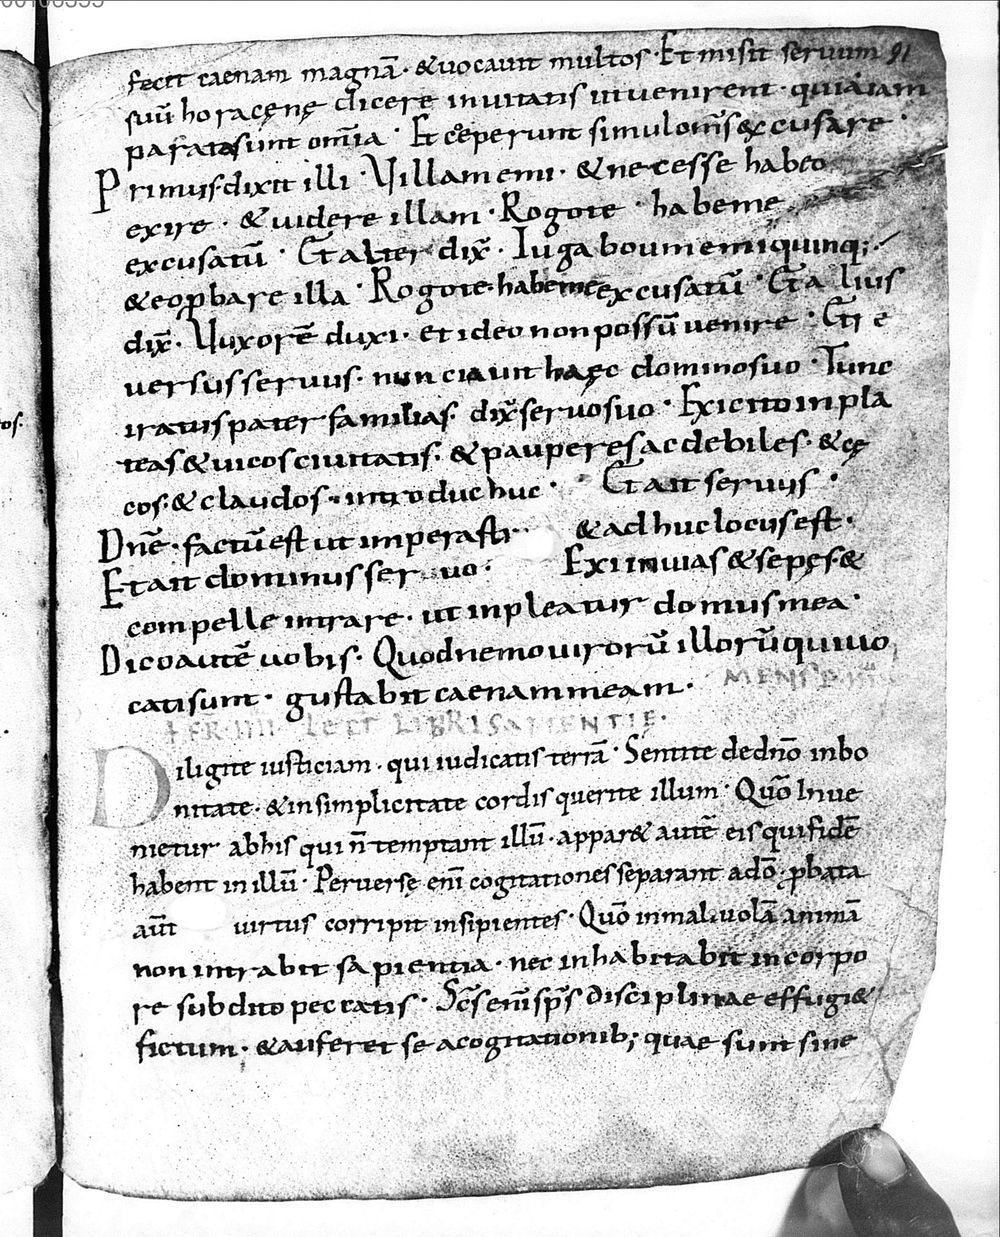 fecit caenam magnā · & uocauit multos · Et misit seruum 91
suū hora cęnę dicere inuitatis ut uenirent · quia iam
parata sunt om̄ia · Et coeperunt simul om̄s excusare ·
Primus dixit illi · Villam emi · & necesse habeo
exire · & uidere illam · Rogo te · habe me
excusatū · Et alter dix̄ · Iuga boum emi quinq;
& eo ꝓbare illa · Rogo te habe me excusatū · Et alius
dix̄ · Uxorē duxi · et ideo non possū uenire · Et re
uersus seruus · nunciauit haec domino suo · Tunc
iratus pater familias · dix̄ seruo suo · Exi cito in pla
teas & uicos ciuitatis · & pauperes ac debiles · & cę
cos · & claudos · introduc huc · Et ait seruus ·
Dn̄e · factū est ut imperasti · & adhuc locus est ·
Et ait dominus seruo · Exi in uias & sepes · &
compelle intrare · ut inpleatur domus mea ·
Dico autē uobis · Quod nemo uirorū illorū qui uo
cati sunt · gustabit caenam meam ·
FER · IIII · LECT LIBRI SAPIENTIE ·
Diligite iusticiam · qui iudicatis terrā · Sentite de dn̄o in bo
nitate · & in simplicitate cordis querite illum · Quō Inue
nietur ab his qui n̄ temptant illū · appar& autē eis qui fidē
habent in illū · Peruerse eni͞ cogitationes separant a dō · ꝓbata
aūt uirtus corripit insipientes · Quō in maliuolā animā
non intrabit sapientia · nec inhabitabit in corpo
re subdito peccatis · Sc̄s eni͞ sp̄s disciplinae effugi&
fictum · & auferet se a cogitationib; quae sunt sine